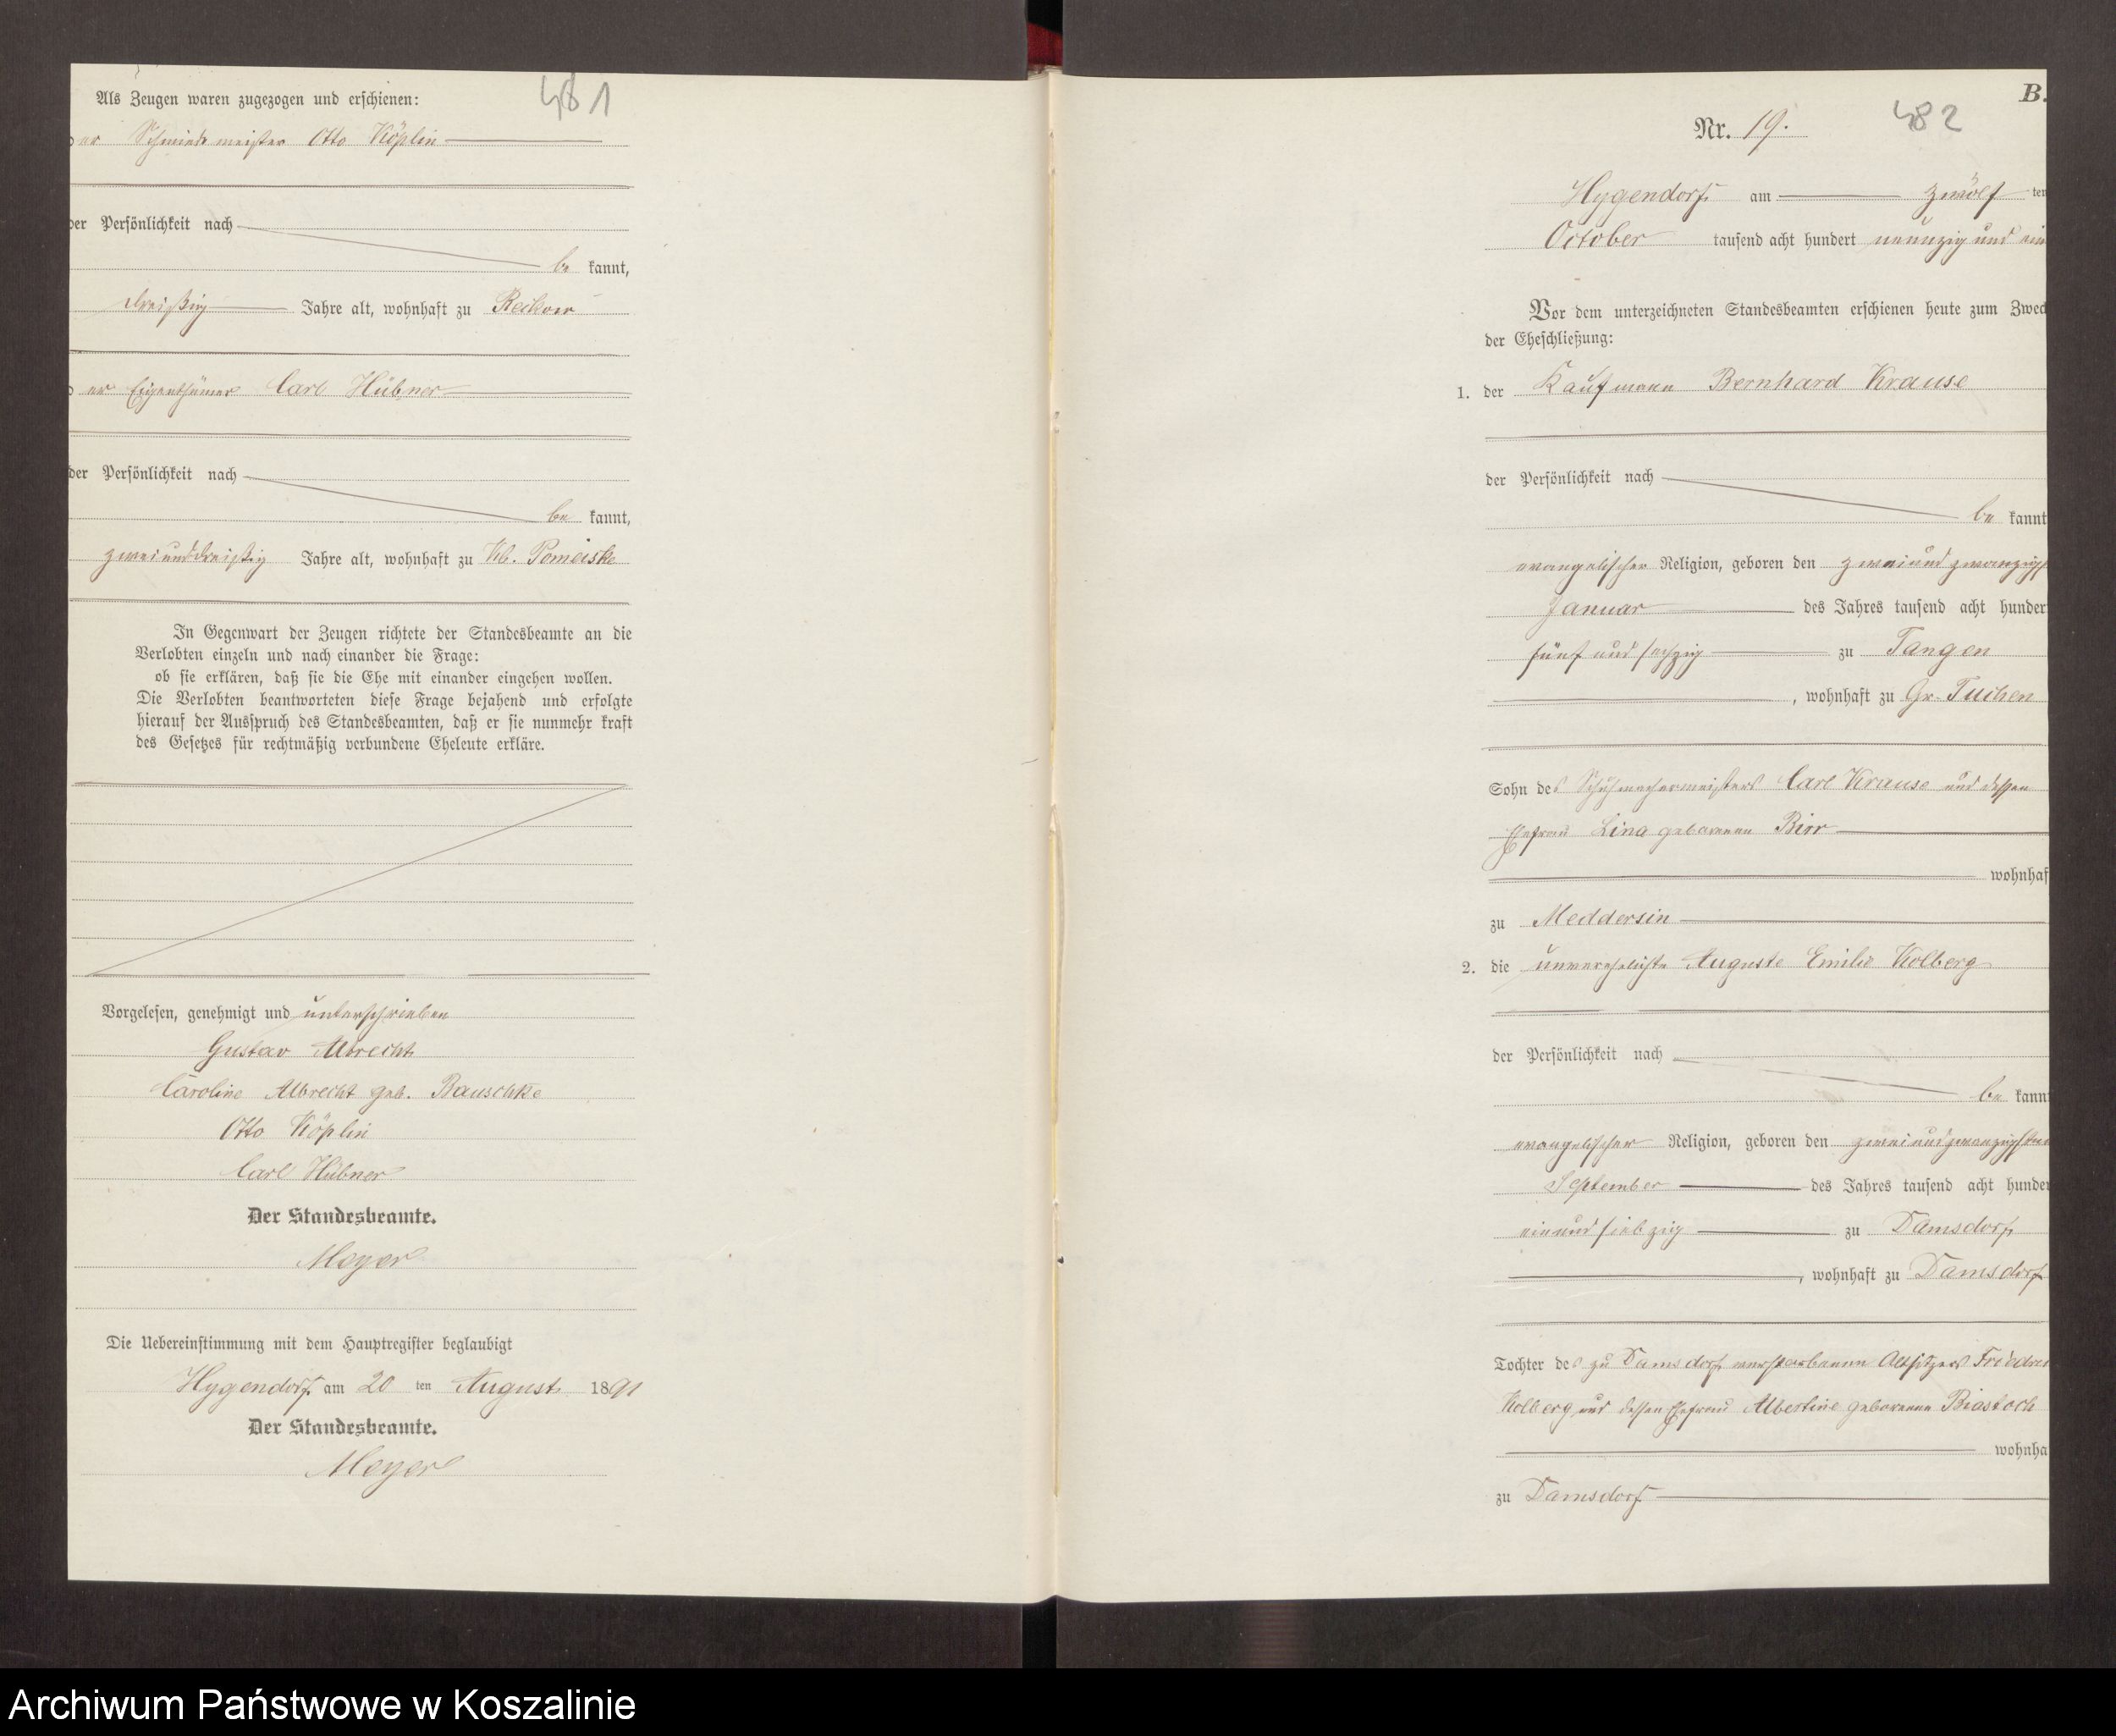 481
Als Zeugen waren zugezogen und erschienen:
er Schmiedemeister Otto Köplin
der Persönlichkeit nach
be kannt,
dreißig Jahre alt, wohnhaft zu Reckow
er Eigenthümer Carl Hübner
der Persönlichkeit nach
be kannt,
zweiunddreißig Jahre alt, wohnhaft zu Kl. Pomeiske
In Gegenwart der Zeugen richtete der Standesbeamte an die
Verlobten einzeln und nach einander die Frage:
ob sie erklären, daß sie die Ehe mit einander eingehen wollen.
Die Verlobten beantworteten diese Frage bejahend und erfolgte
hierauf der Ausspruch des Standesbeamten, daß er sie nunmehr kraft
des Gesetzes für rechtmäßig verbundene Eheleute erkläre.
Vorgelesen, genehmigt und unterschrieben
Gustav Albrecht
Caroline Albrecht geb. Bauschke
Otto Köplin
Carl Hübner
Der Standesbeamte.
Meyer
Die Uebereinstimmung mit dem Hauptregister beglaubigt
Hygendorf am 20 ten August 1891
Der Standesbeamte.
Meyer
B.
482
Nr. 19.
Hygendorf am zwölf ten
October tausend acht hundert neunzig und ein
Vor dem unterzeichneten Standesbeamten erschienen heute zum Zweck
der Eheschließung:
1. der Kaufmann Bernhard Krause
der Persönlichkeit nach
be kannt
evangelischer Religion, geboren den zweiundzwanzigst
Januar des Jahres tausend acht hunder
fünf und sechzig zu Tangen
, wohnhaft zu Gr. Tuchen
Sohn des Schuhmachermeisters Carl Krause und dessen
Ehefrau Lina geborenen Birr
wohnhaf
zu Meddersin
2. die unverehelichte Auguste Emilie Kolberg
der Persönlichkeit nach
be kannt
evangelischer Religion, geboren den zweiundzwanzigsten
September des Jahres tausend acht hunder
einundsiebzig zu Damsdorf
, wohnhaft zu Damsdorf
Tochter des zu Damsdorf verstorbenen Altsitzers Friedrich
Kolberg und dessen Ehefrau Albertine geborenen Biastoch
wohnha
zu Damsdorf
Archiwum Państwowe w Koszalinie